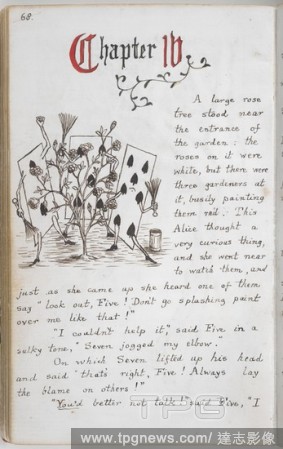 68.
Chapter IV
A large rose
tree stood near
the entrance of
the garden: the
roses on it were
white, but there were
three gardeners at
it, busily painting
them red. This
Alice thought a
very curious thing,
and she went near
to watch them, and
just as she came up she heard one of them
say "look out, Five! Don't go splashing paint
over me like that!"
"I couldn't help it," said Five in a
sulky tone, "Seven jogged my elbow."
On which Seven lifted up his head
and said "that's right, Five! Always lay
the blame on others!"
"You'd better not talk!" said Five, "I
TPG
www.tpgnews.com/達志影像